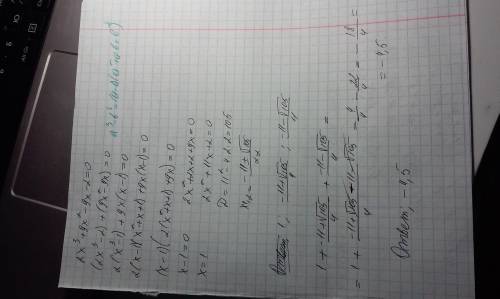 2x³+9x²-9x-2=0
(2x³-2)+(9x²-9x)=0
2(x³-1)+9x(x-1)=0
2(x-1)(x²+x+1)+9x(x-1)=0
(x-1)(2(x²+x+1)+9x)=0
x-1=0
x=1
2x²+2x+2+9x=0
2x²+11x+2=0
D=11²-4·2·2=105
x₂=-11±√105/2·2
1; -11+√105/4; -11-√105/4
1+ -11+√105/4 + -11-√105/4 =
=1+ -11+√105-11-√105/4 = 4/4 - 22/4 = -18/4 =
=-4,5
Ответ: -4,5